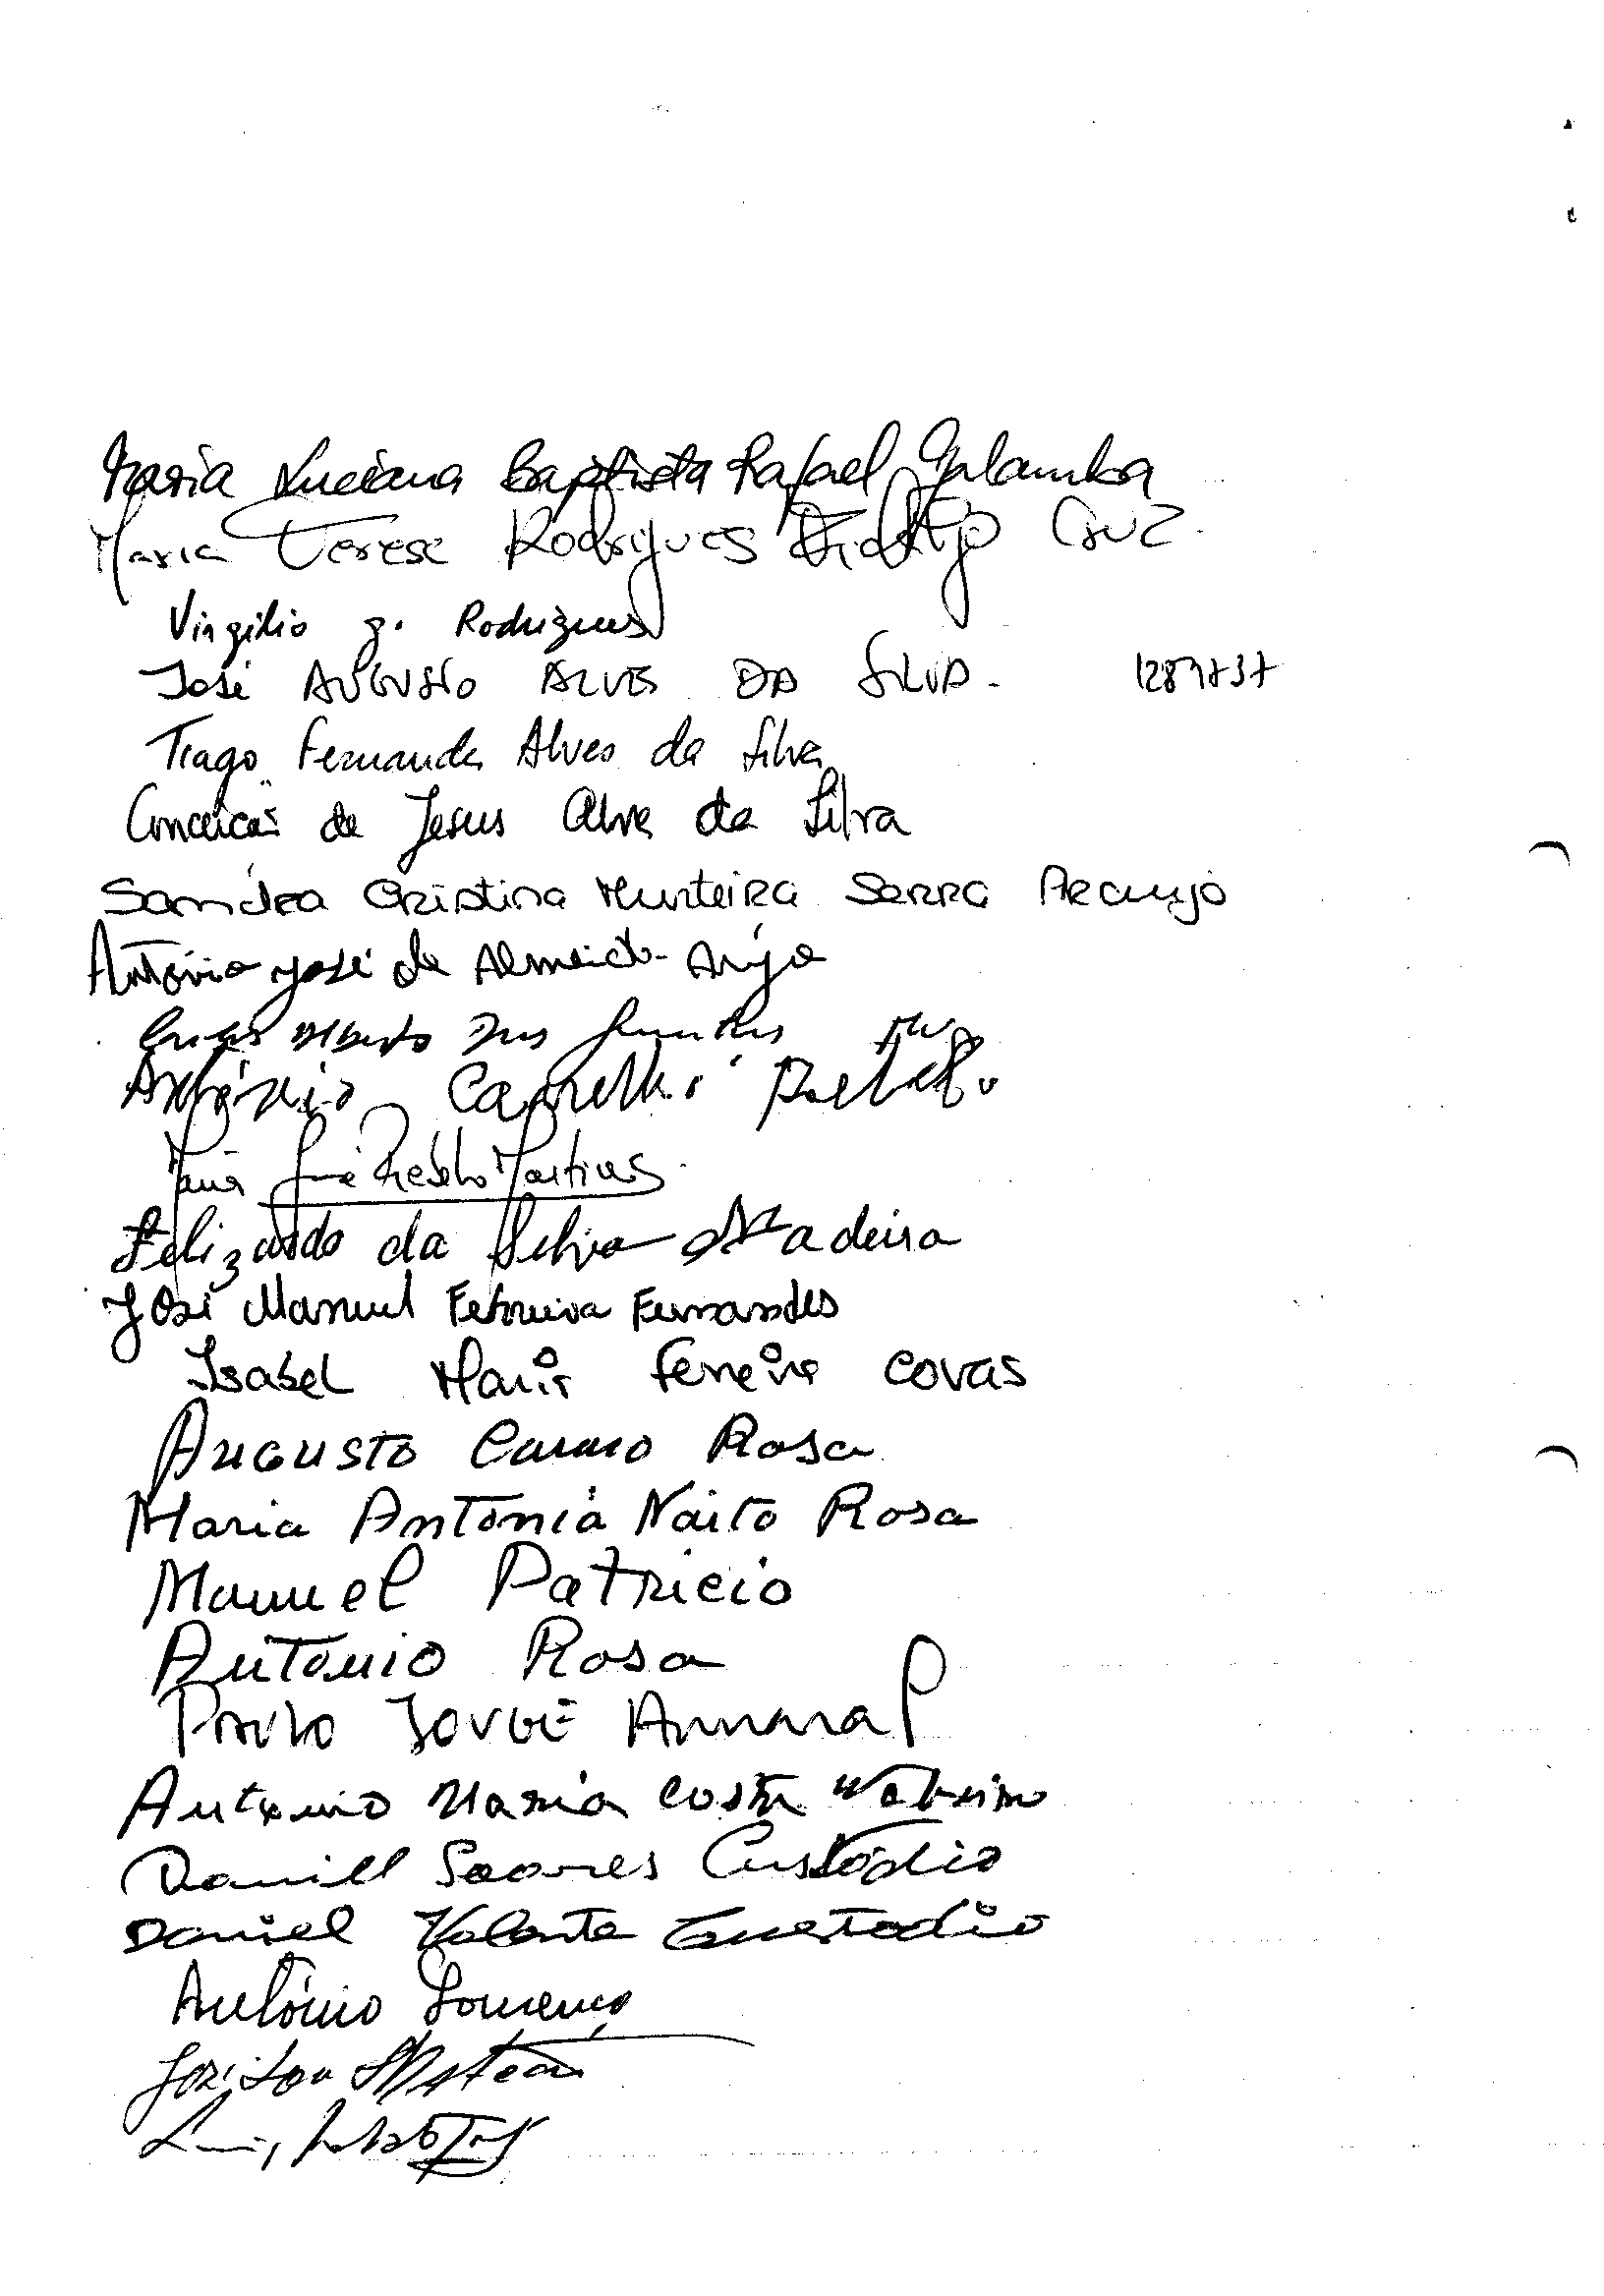 Maria Luciana Baptista Rafael Galamba
Maria Teresa Rodrigues Fidalgo Cruz
Virgilio J. Rodrigues
José AUGUSTO ALVES DA SILVA
Tiago Fernandes Alves da Silva
Conceição de Jesus Alves da Silva
Sandra Cristina Serra Araujo
António José de Almeida
Alberto dos
António
Maria José Rebelo Martins
Felizardo da Silva Madeira
José Manuel Ferreira Fernandes
Isabel Maria Ferreira Covas
Augusto Carmo Rosa
Maria Antónia Rosa
Manuel Patricio
António Rosa
Paulo Jorge Amaral
António Maria Costa
Daniel Soares Custódio
Daniel Valente Custodio
António Lourenço
Luis